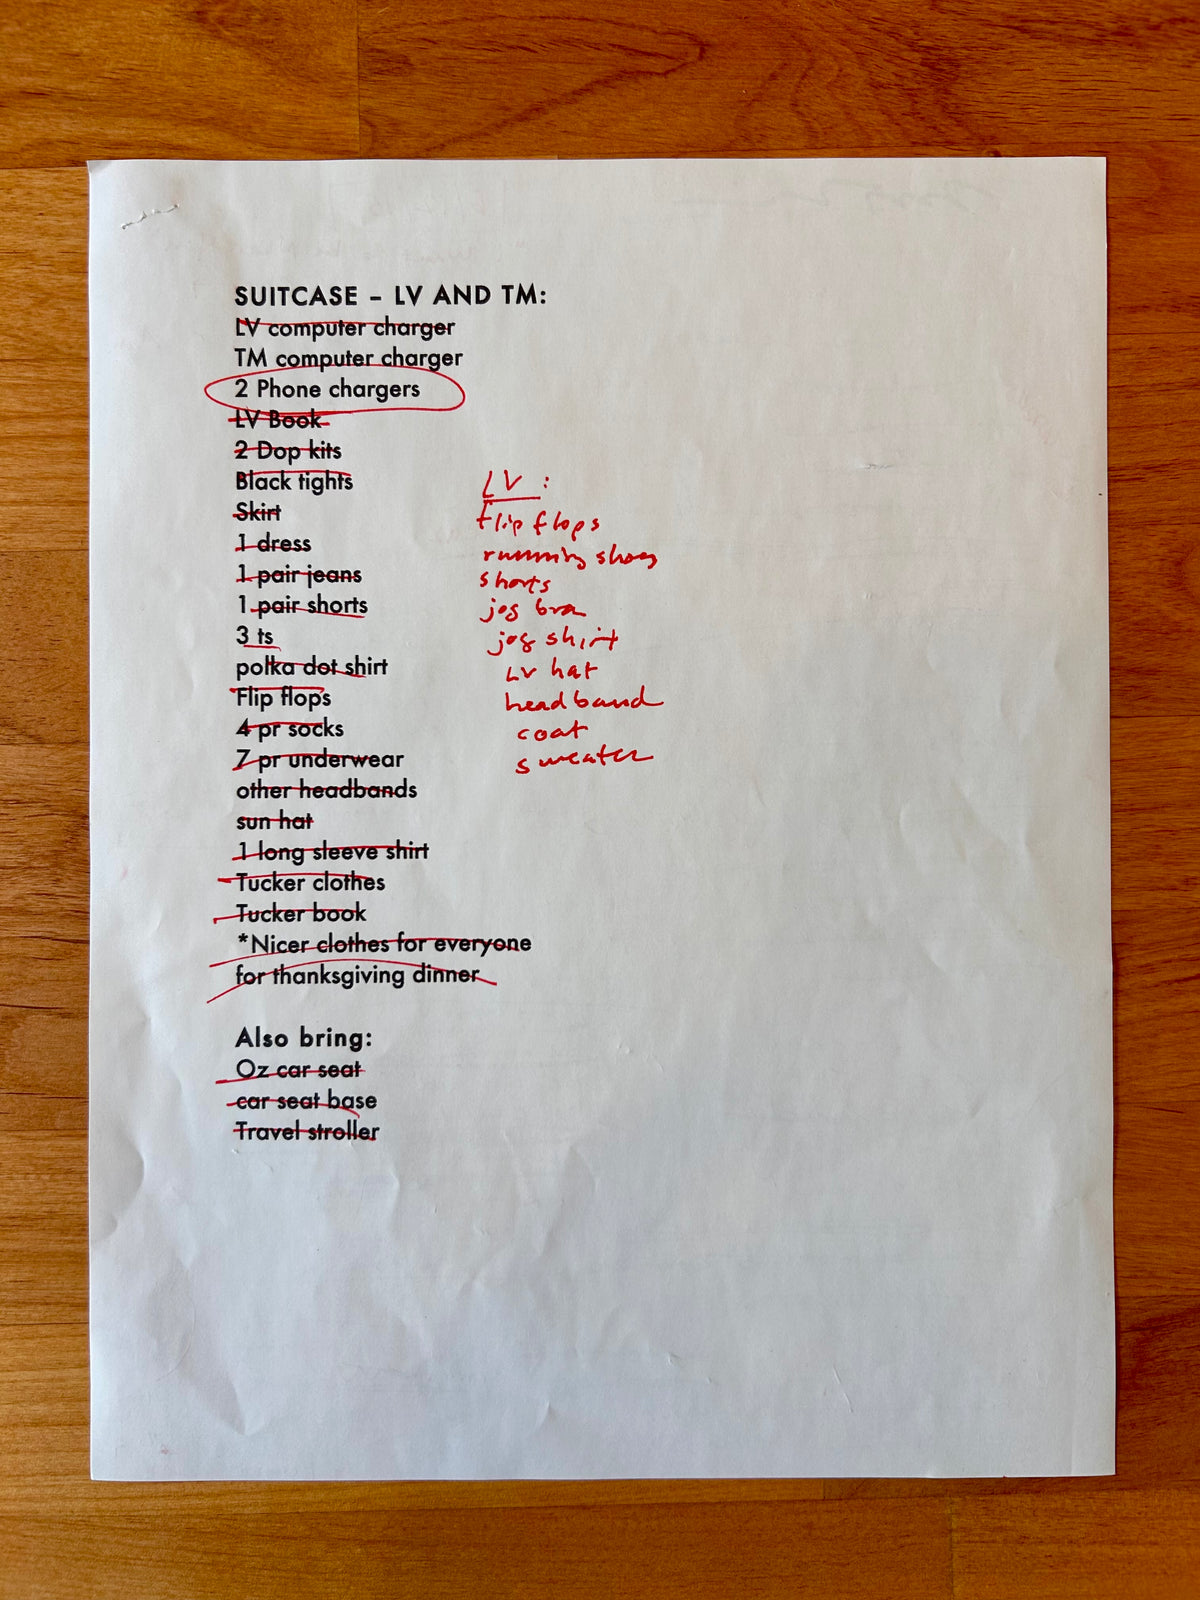 SUITCASE – LV AND TM:
LV computer charger
TM computer charger
2 Phone chargers
LV Book
2 Dop kits
Black tights
Skirt
1 dress
1 pair jeans
1 pair shorts
3 ts
polka dot shirt
Flip flops
4 pr socks
7 pr underwear
other headbands
sun hat
1 long sleeve shirt
Tucker clothes
Tucker book
*Nicer clothes for everyone
for thanksgiving dinner
Also bring:
Oz car seat
car seat base
Travel stroller
LV:
flip flops
running shoes
shorts
jog bra
jog shirt
LV hat
headband
coat
sweater